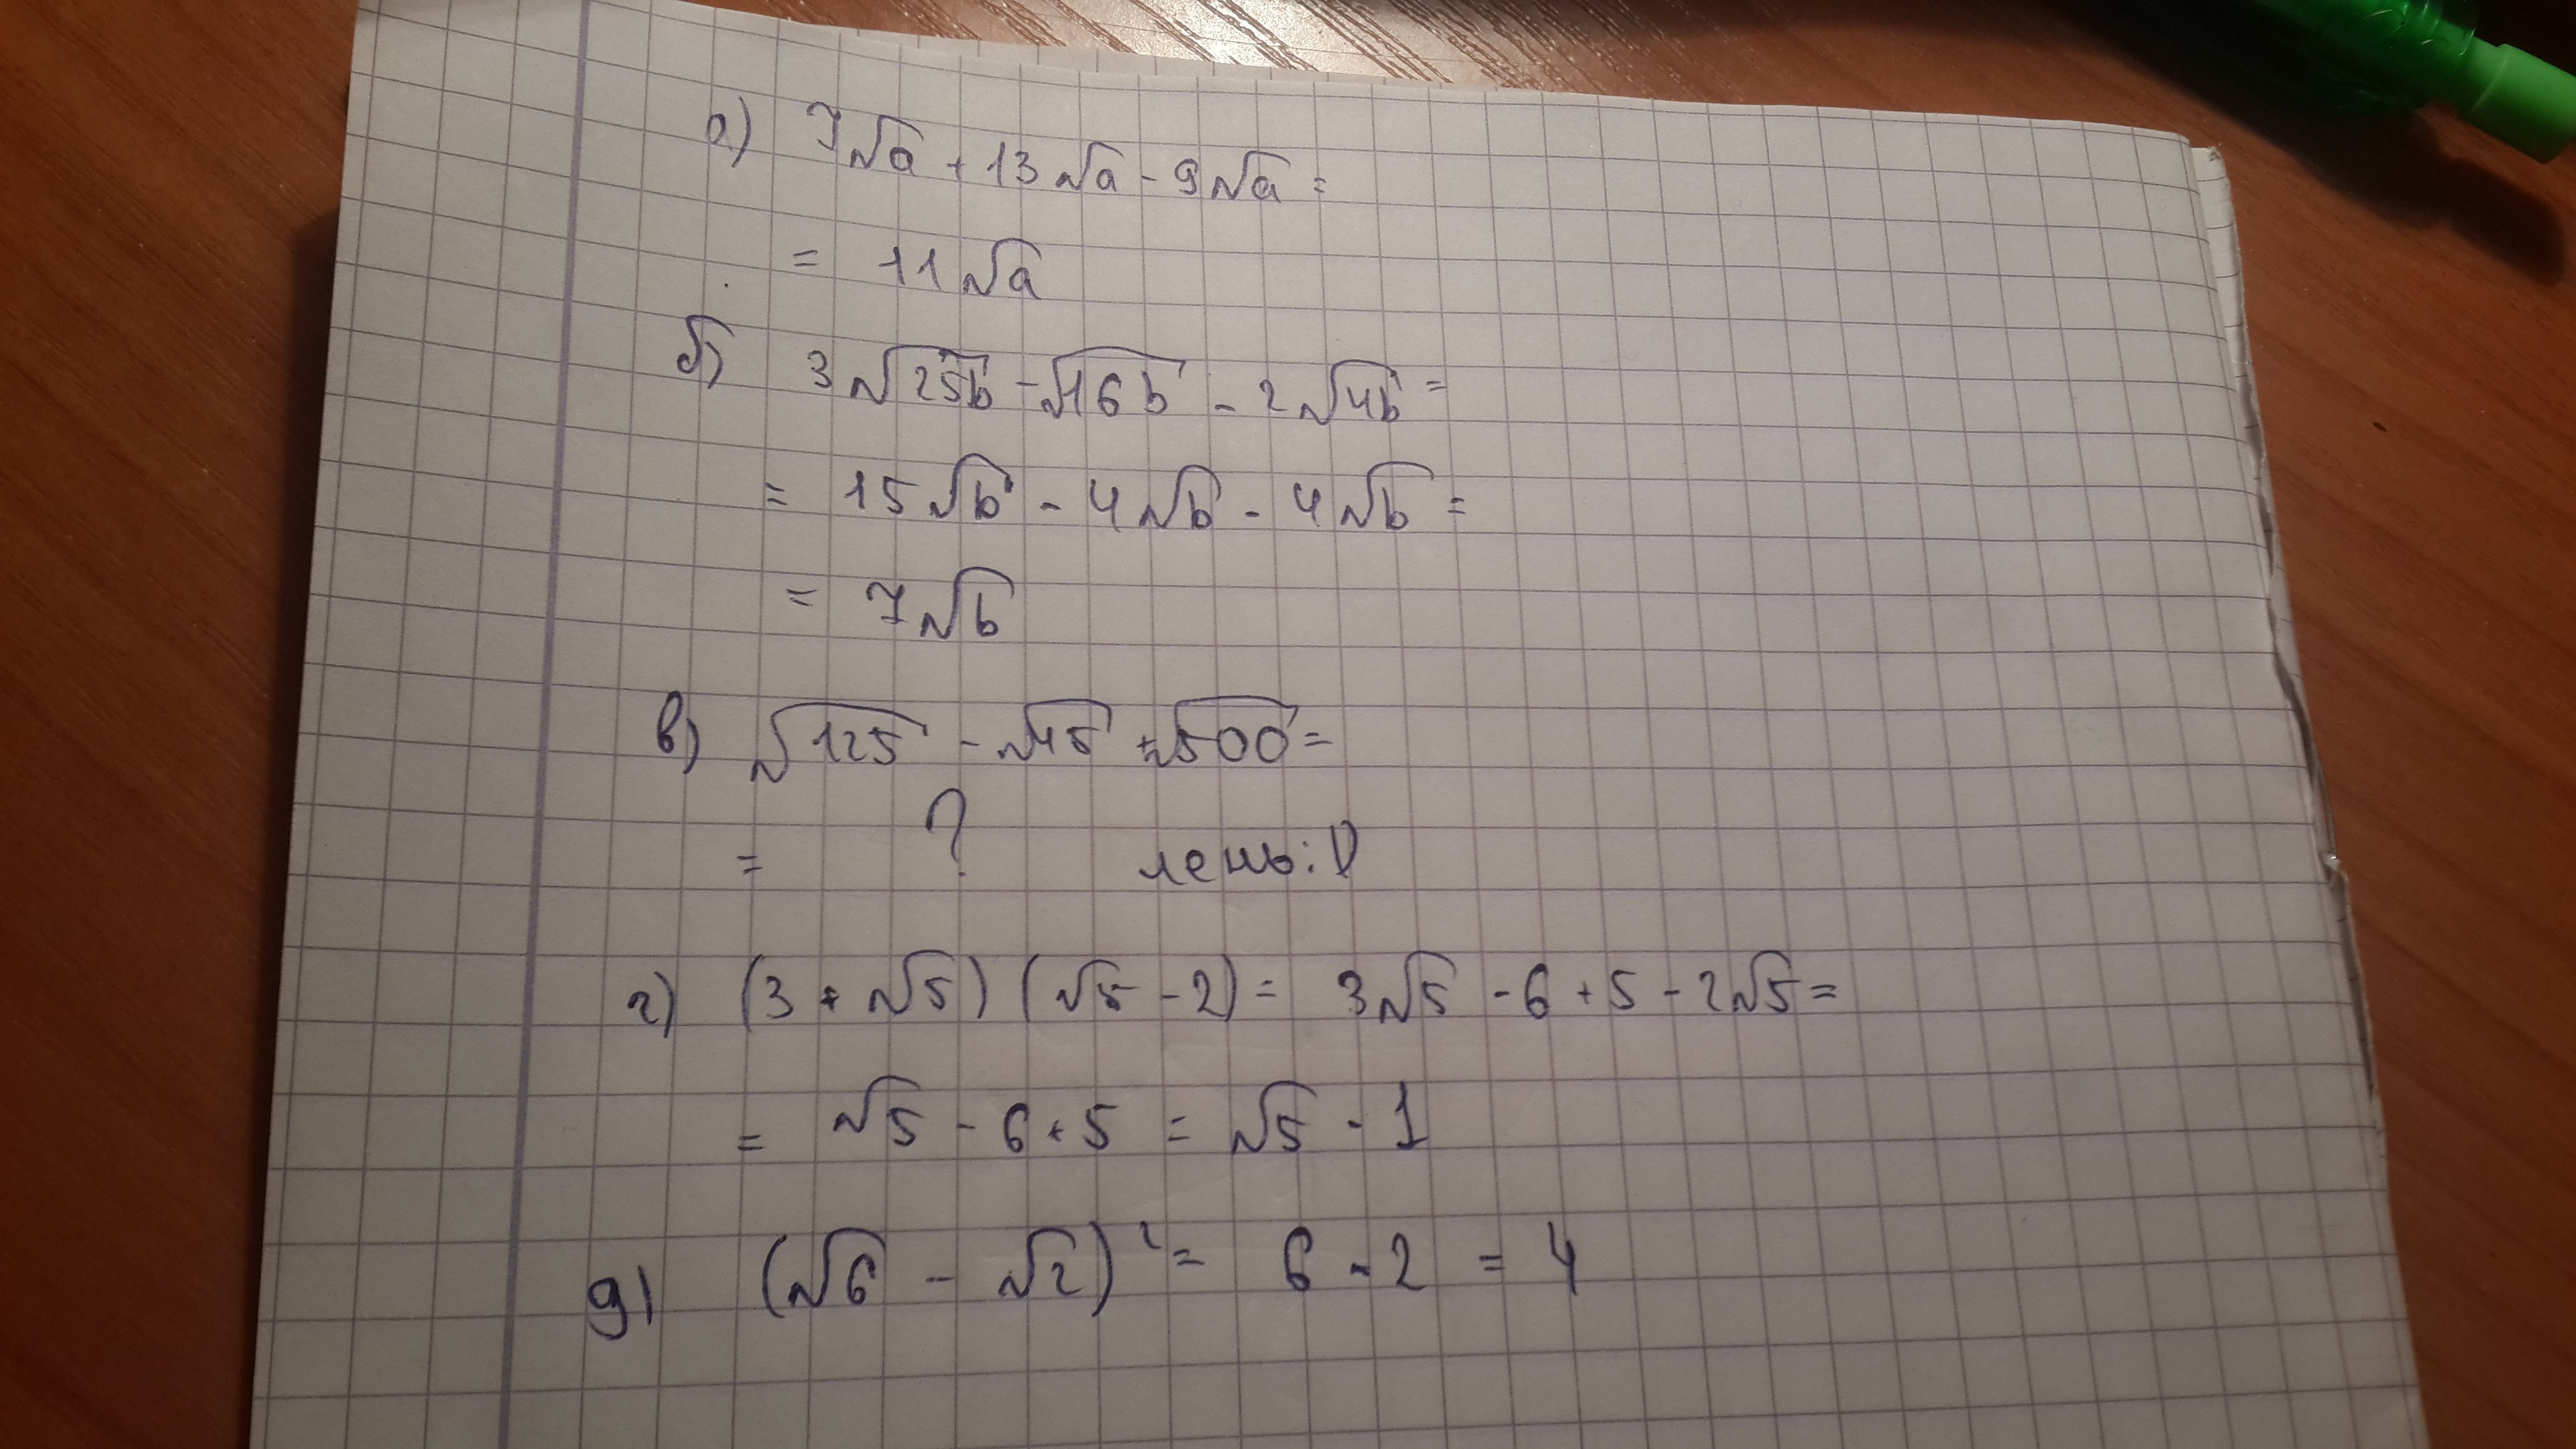 а) 7√a + 13√a - 9√a =
= 11√a
б) 3√25b - √16b - 2√4b =
= 15√b - 4√b - 4√b =
= 7√b
в) √125 - √45 + √500 =
= ? лень :D
г) (3 + √5) (√5 - 2) = 3√5 - 6 + 5 - 2√5 =
= √5 - 6 + 5 = √5 - 1
д) (√6 - √2)² = 6 - 2 = 4